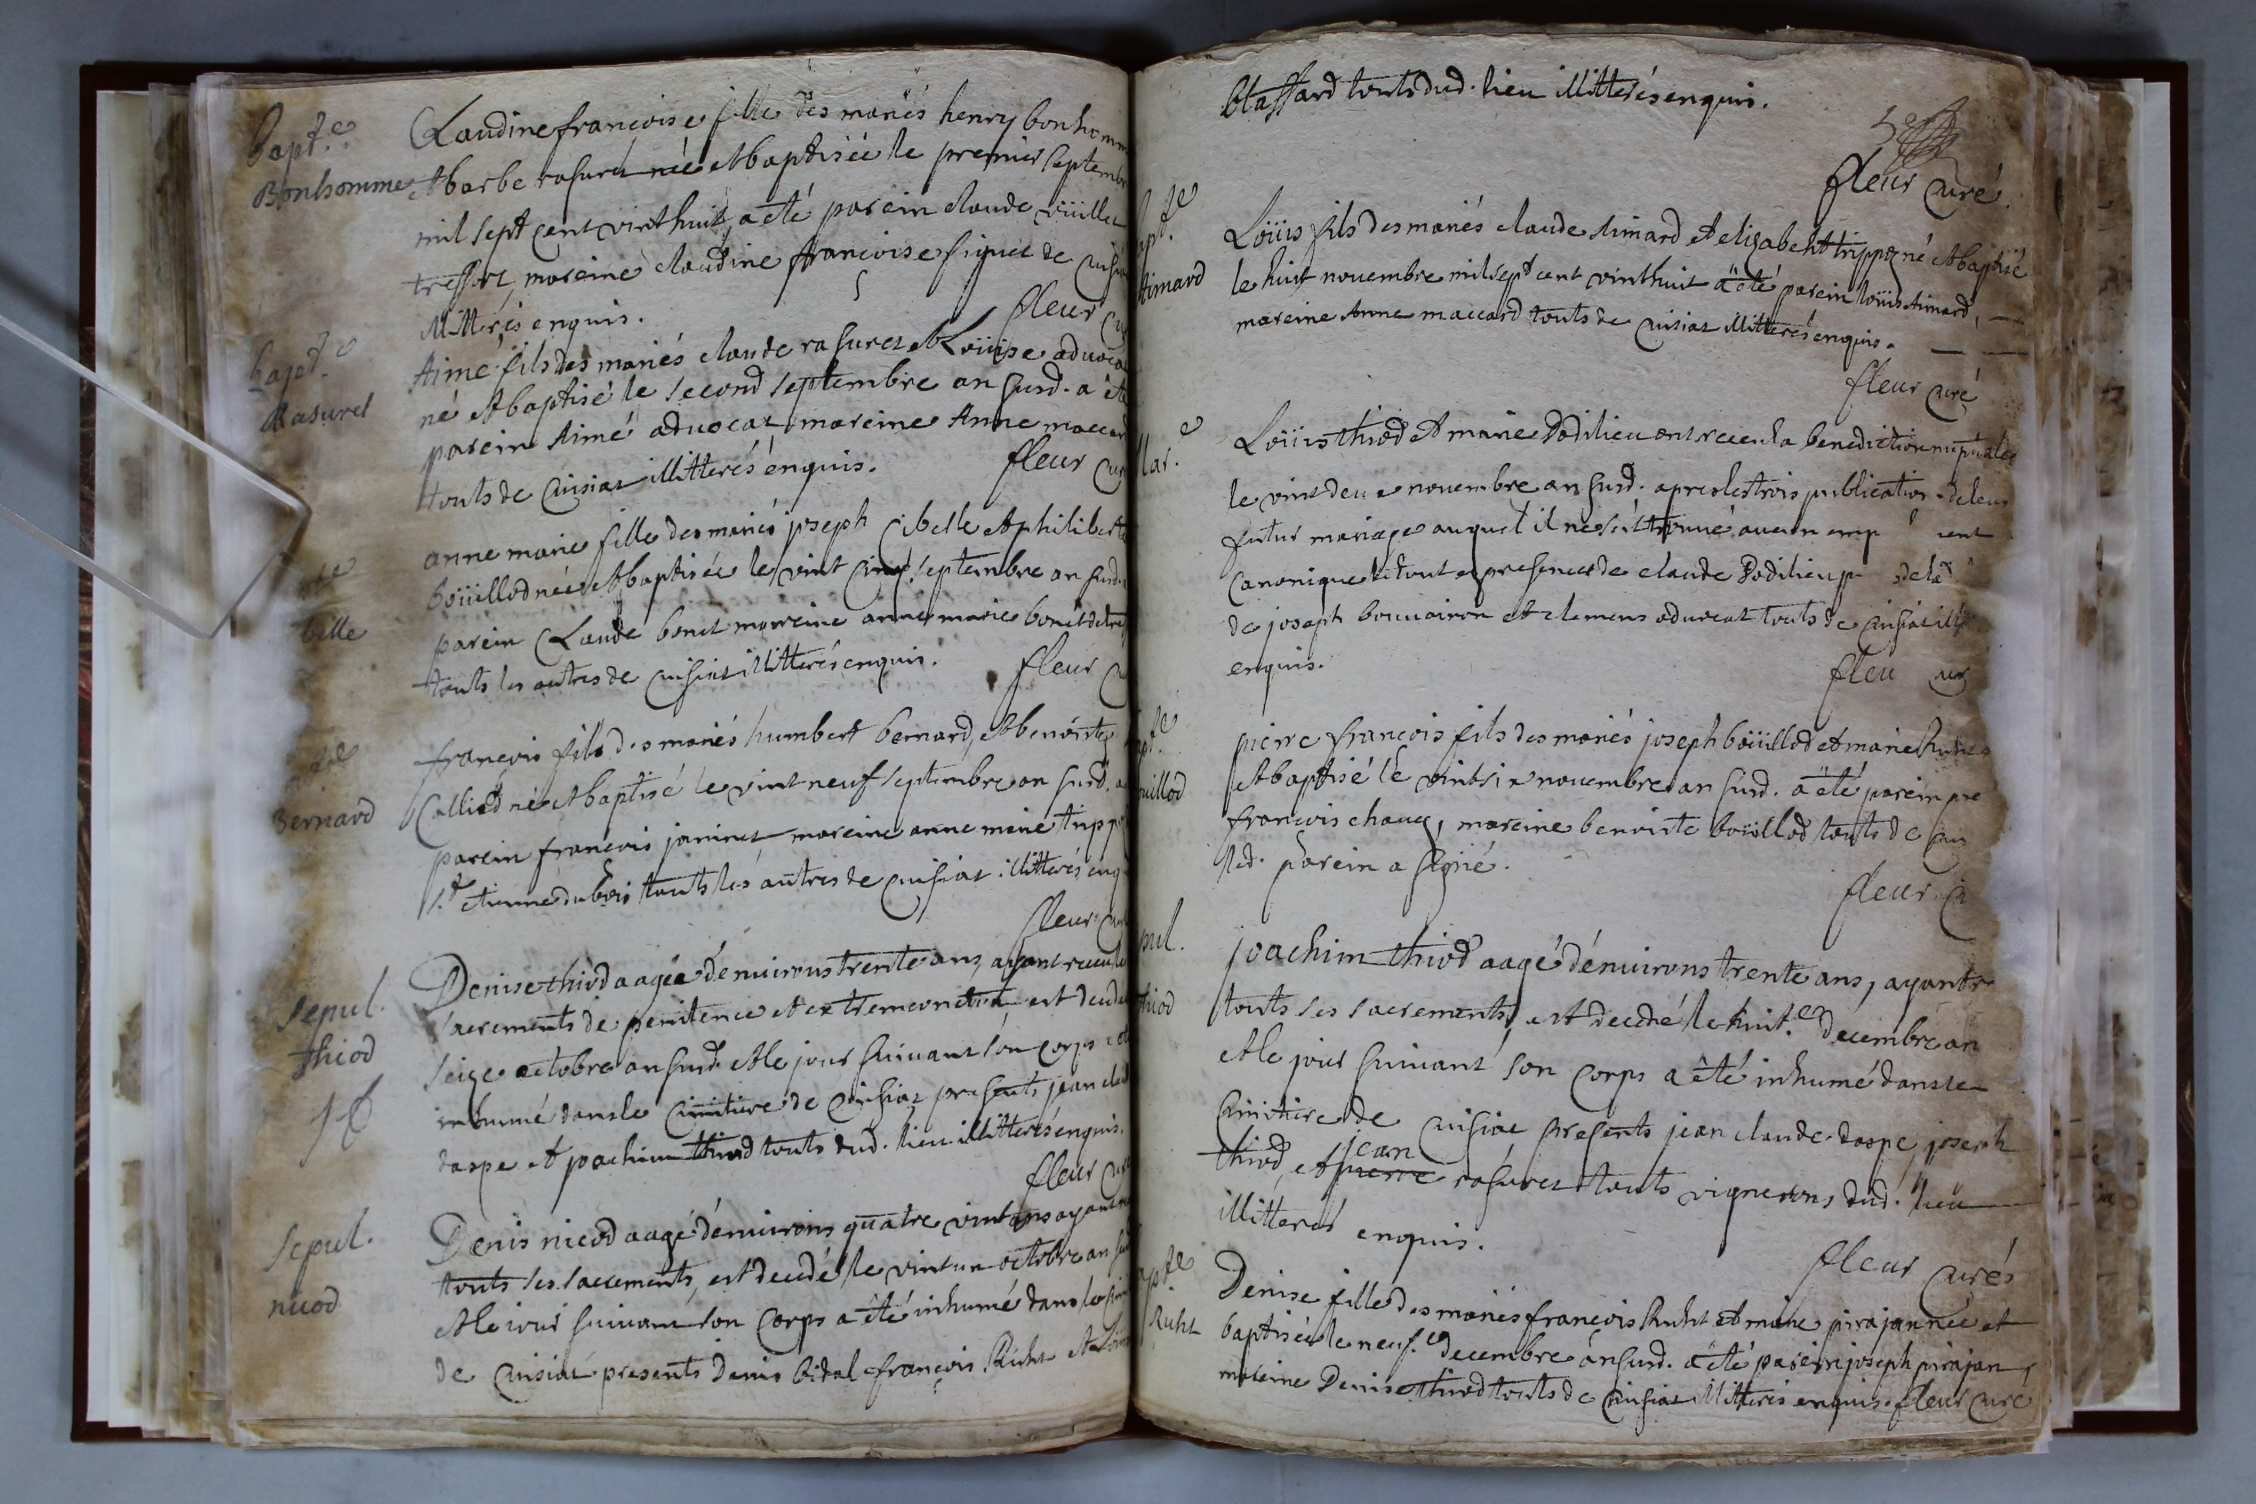 bapt.e
Bonhomme
Claudine francoise fille des mariés henry bonhomm
et barbe rasurel née et baptisée le premier septembr
mil sept cent vint huit, a eté parein claude vüillet
tressort, mareine claudine francoise figuet de cuisia
illitterés enquis.
fleur cu
bapt.e
Rasurel
Aimé fils des mariés claude rasurel et Loüise advoca
né et baptisé le second septembre an susd. a été
parein Aimé advocat, mareine Anne maccard
touts de cuisiat illitterés enquis.
fleur cur
belle
anne marie fille des mariés joseph Cibelle et philiberte
boüillod née et baptisée le vint cinq septembre an susd.
parein Claude bonet mareine anne marie bonet de tre
touts les autres de cuisiat illitterés enquis.
fleur c
Bernard
francois fils des mariés humbert bernard, et benoiste
Colliod né et baptisé le vint neuf septembre an susd. a
parein francois janinet mareine anne marie trippo
s.t etienne du bois touts les autres de cuisiat illitterés enq
fleur cur
sepul.
thiod
Denise thiod aagée d'enuirons trente ans, ayant receu le
sacrements de penitence et extremeonction est decedé
seize octobre an susd. et le jour suiuant son corps a été
inhumé dans le cimitiere de cuisiat presents jean claud
daspe et joachim thiod touts dud. lieu illitterés enquis.
fleur cur
sepul.
nicod
Denis nicod aagé d'enuirons quatre vint ans ayant re
touts ses sacrements, est decedé le vint un octobre an su
et le jour suiuant son corps a été inhumé dans le cimi
de cuisiat presents denis bidal francois Ruht et Loüis
blaffard touts dud. lieu illitterés enquis.
fleur curé
apt.e
Aimard
Loüis fils des mariés claude Aimard et elizabeht trippoz né et baptisé
le huit nouembre mil sept cent vint huit a été parein loüis Aimard,
mareine Anne maccard touts de cuisiat illitterés enquis.
fleur curé
Mar.e
Loüis thiod et marie Podilieu ont receu la benediction nuptiale
le vint deux nouembre an susd. apres les trois publications de leur
futur mariage auquel il ne s'est trouué aucun emp ent
canonique le tout es presences de claude Podilieu p
de joseph bouuairon et clemens aduocat touts de cuisiat ill
enquis.
fleu cur
apt.e
ouillod
pierre francois fils des mariés joseph boüillod et marie Ruht
et baptisé le vint six nouembre an susd. a été parein pre
francois chaux, mareine benoiste boüillod touts de cuis
led. parein a signé.
fleur c
pul.
thiod
joachim thiod aagé d'enuirons trente ans, ayant r
touts ses sacrements, est decedé le huit.e decembre an
et le jour suiuant son corps a été inhumé dans le
cimitiere de cuisiat presents jean claude daspe, joseph
thiod, et pierre jean rasurel touts vignerons dud. lieu
illitterés enquis.
fleur curé
apt.e
Ruht
Denise fille des mariés francois Ruht et marie pirajan née et
baptisée le neuf.e decembre an susd. a été parein joseph pirajan,
mareine Denise thiod touts de cuisiat illitterés enquis. fleur curé